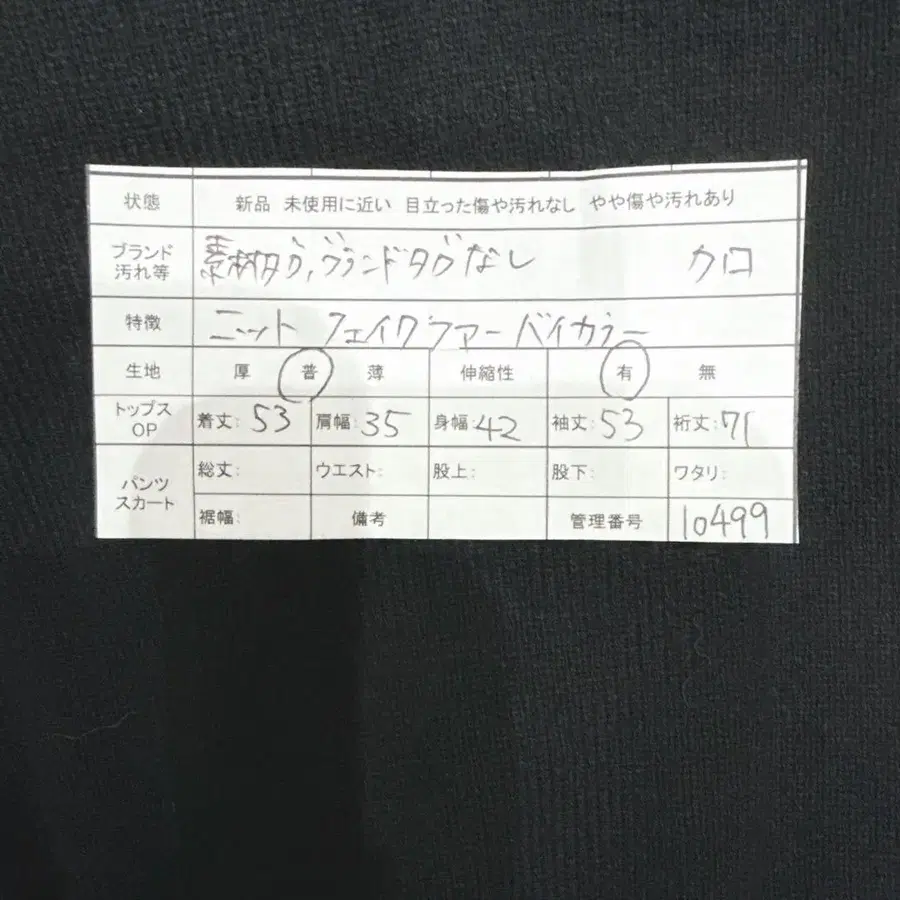 状態 新品 未使用に近い 目立った傷や汚れなし やや傷や汚れあり
ブランド
汚れ等 素材タグ,ブランドタグなし クロ
特徴 ニット フェイクファー バイカラー
生地 厚 普 薄 伸縮性 有 無
トップス
OP 着丈: 53 肩幅: 35 身幅: 42 袖丈: 53 裄丈: 71
パンツ
スカート 総丈: ウエスト: 股上: 股下: ワタリ:
裾幅: 備考 管理番号 10499